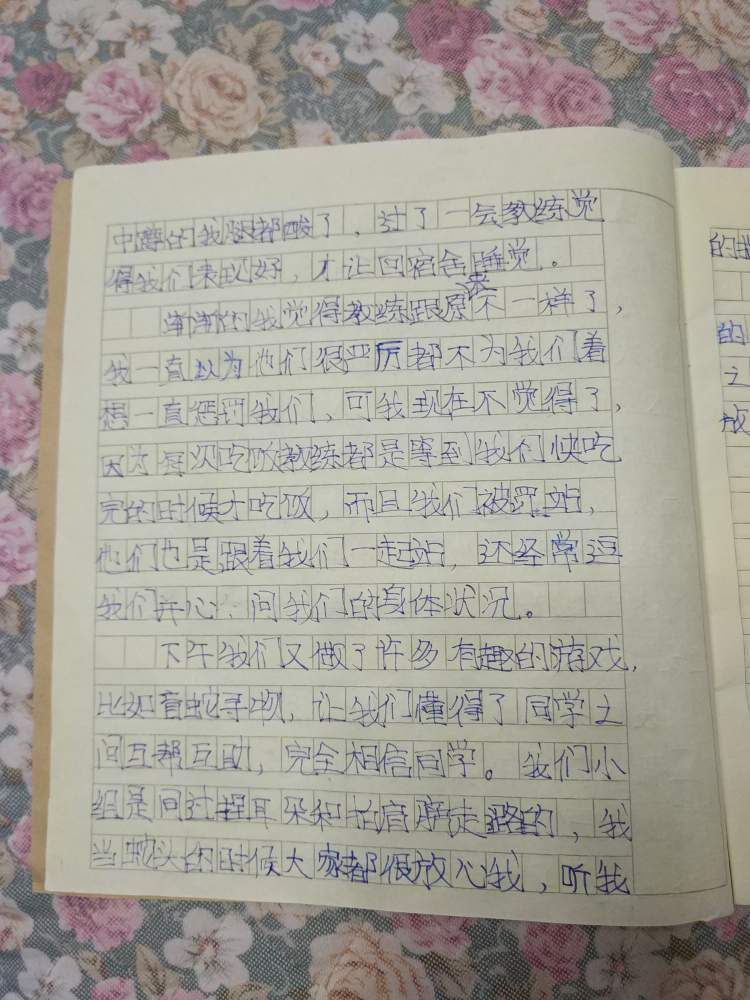 中蹲的我腿都酸了，过了一会教练觉
得我们表现好，才让回宿舍睡觉。
渐渐的我觉得教练跟原来不一样了，
我一直以为他们很严厉都不为我们着
想一直惩罚我们，可我现在不觉得了，
因为每次吃饭教练都是等到我们快吃
完的时候才吃饭，而且我们被罚站，
他们也是跟着我们一起站，还经常逗
我们开心，问我们的身体状况。
下午我们又做了许多有趣的游戏，
比如盲蛇寻物，让我们懂得了同学之
间互帮互助，完全相信同学。我们小
组是同过捏耳朵和拍肩膀走路的，我
当蛇头的时候大家都很放心我，听我
的
的
之